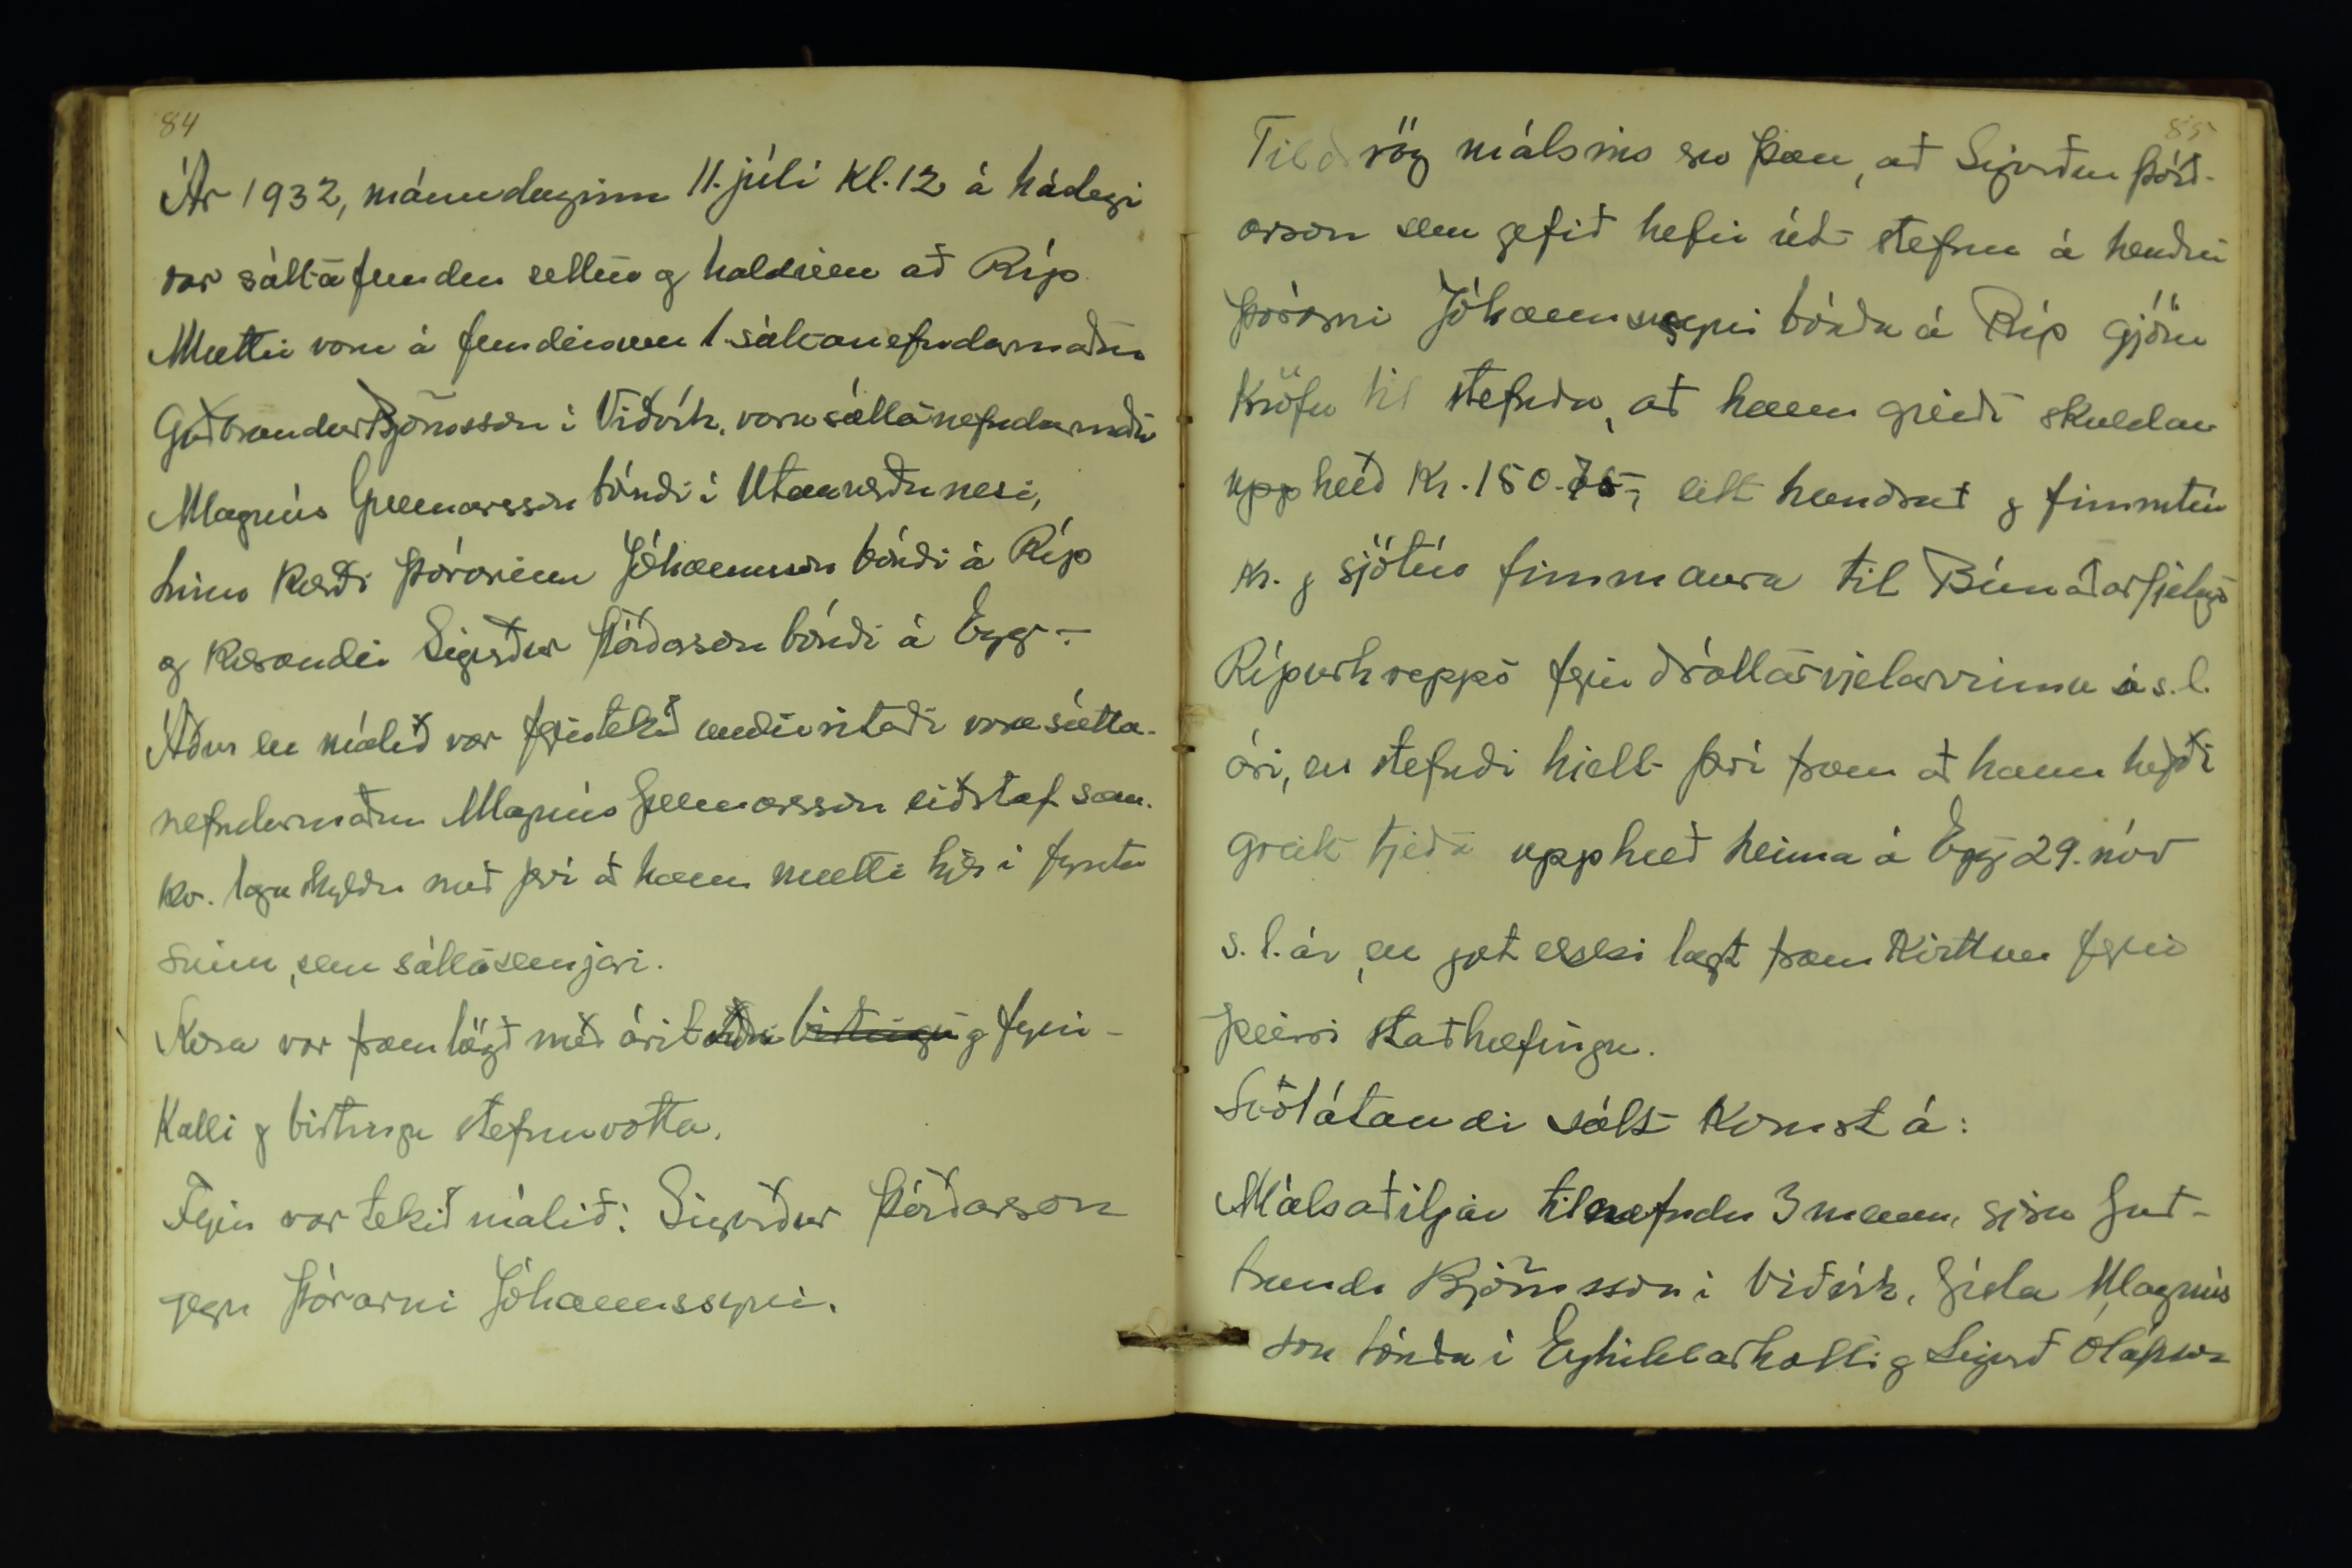 84
Ár 1932, mánudaginn 11. júlí Kl. 12 á hádegi
var sáttafundur settur og haldinn að Ríp
Mættir voru á fundinum 1. sáttanefndarmaður
Guðbrandur Björnsson í Viðvík, vara sáttanefndarmaður
Magnús Gunnarsson bóndi í Utanverðunesi,
hinn kærði Þórarinn Jóhannsson bóndi á Ríp
og kærandi Sigurður Þórðarson bóndi á Egg.-
Áður en málið var fyrirtekið undirritaði vara sátta-
nefndarmaður Magnús Gunnarsson eiðstaf sam-
kv. lagaskyldu með því að hann mætti hjer í fyrsta
sinn, sem sáttasemjari.
Kæra var framlögð með árituðu birtingu og fyrir-
kalli og birtingu stefnuvotta.
Fyrir var tekið málið: Sigurður Þórðarson
gegn Þórarni Jóhannssyni.
85
Tildrög málsins eru þau, að Sigurður Þórð-
arson sem gefið hefir út stefnu á hendur
Þórarni Jóhannssyni bónda á Ríp gjörir
kröfu til stefnda, að hann greiði skuldar
upphæð Kr. 150.75, eitt hundrað og fimmtíu
kr. og sjötíu fimm aura til Búnaðarfjelags
Rípurhrepps fyrir dráttarvjelarvinnu á s.l.
ári, en stefndi hjelt því fram að hann hefði
greitt tjeða upphæð heima á Egg 29. nóv
s.l. ár, en gat ekki lagt fram kvittun fyrir
þeirri staðhæfingu.
Svolátandi sátt komst á:
Málsaðiljar tilnefndu 3 menn, sjera Guð-
brand Björnsson í Viðvík, Gísla Magnús
son bónda í Eyhildarholti og Sigurð Ólafsson